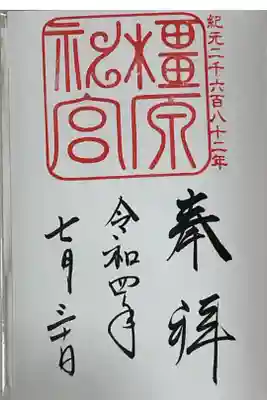 紀元二千六百八十二年
橿原
神宮
奉拝
令和四年
七月三十日